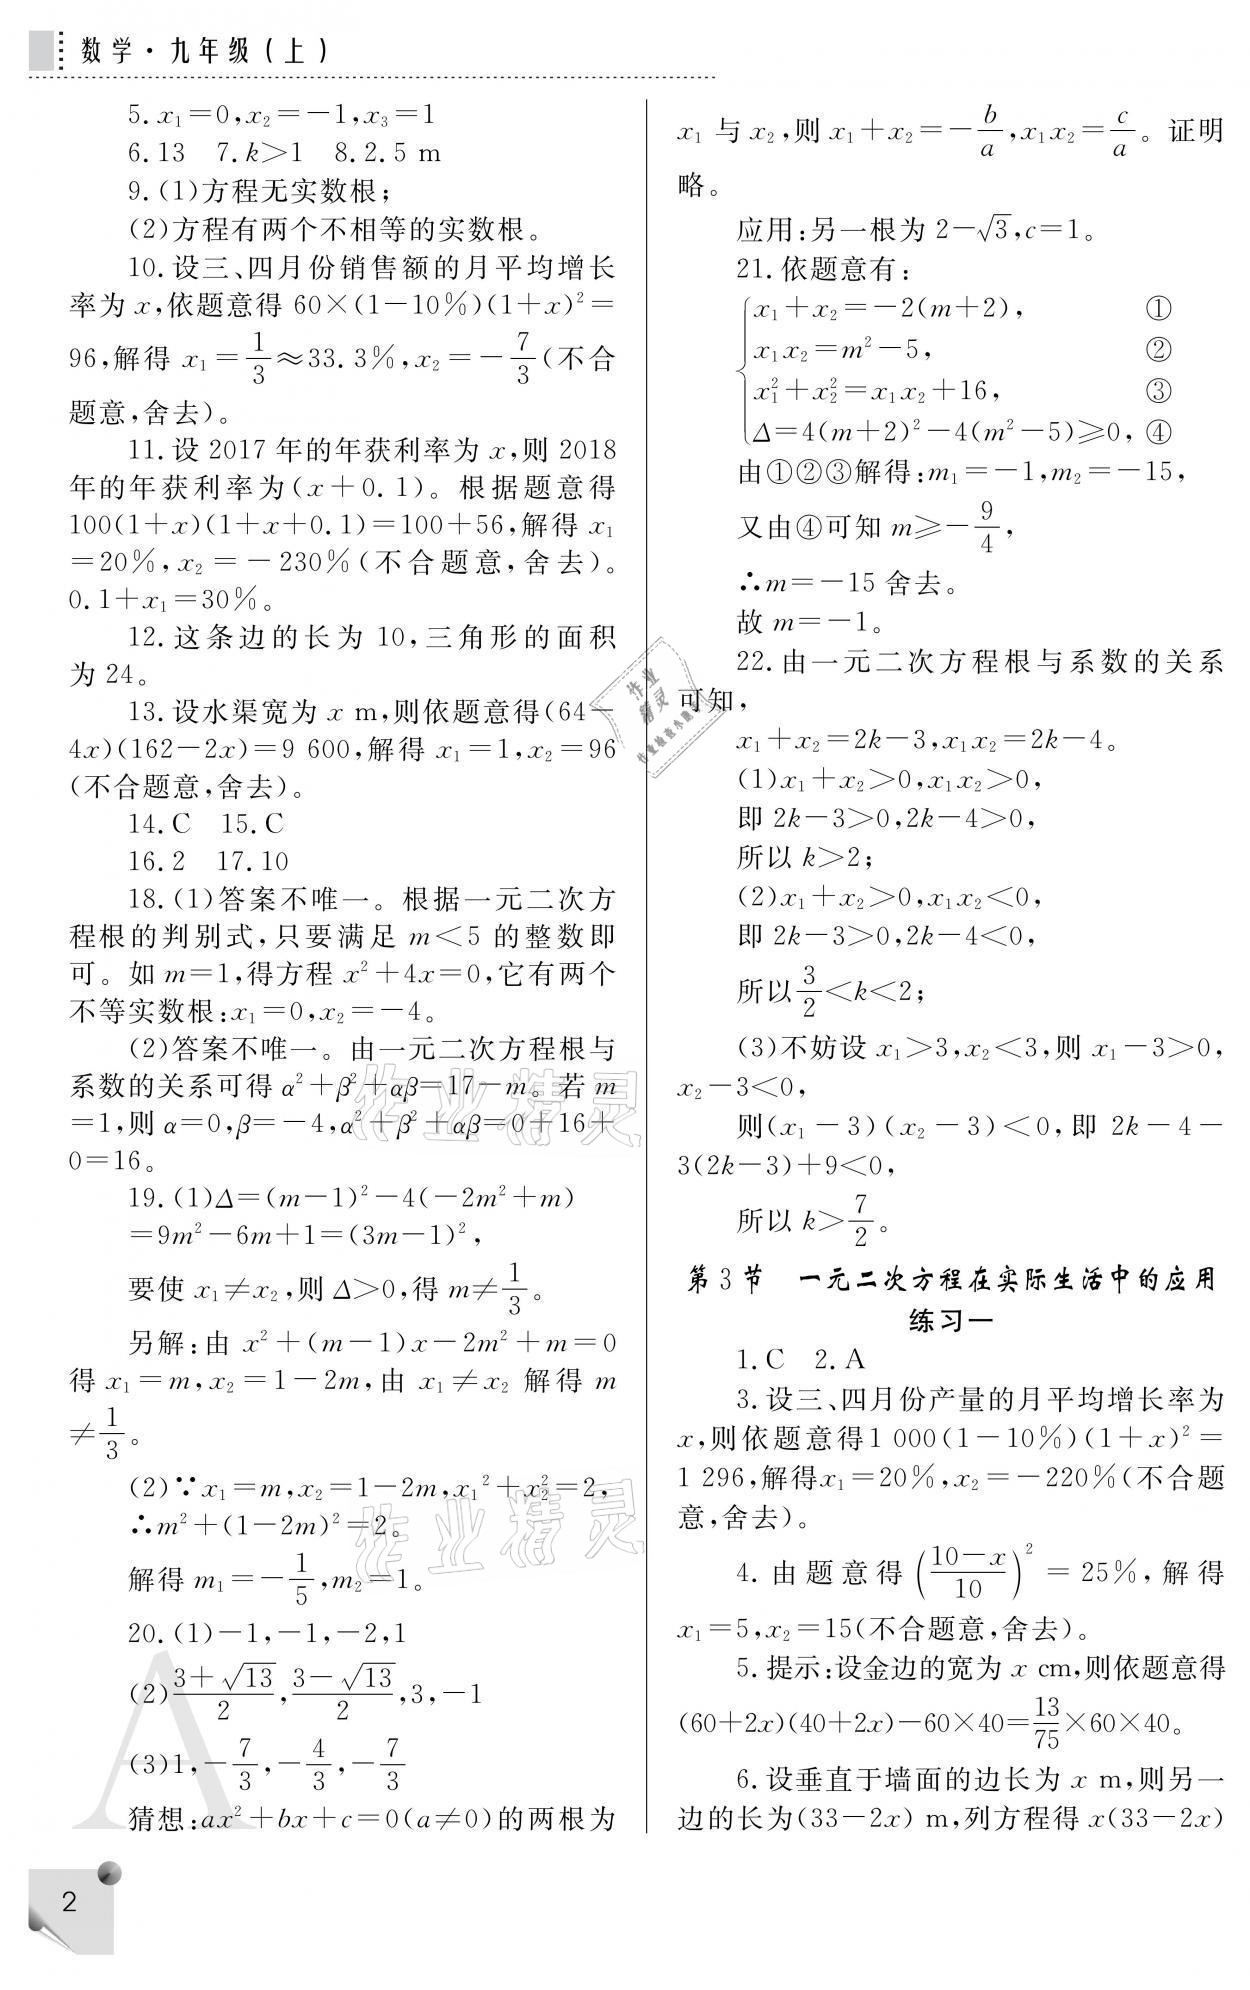 数学·九年级(上)
5.x₁=0,x₂=-1,x₃=1
6.13 7.k>1 8.2.5 m
9.(1)方程无实数根;
(2)方程有两个不相等的实数根。
10.设三、四月份销售额的月平均增长
率为 x,依题意得 60×(1-10%)(1+x)²=
96,解得 x₁=1/3≈33.3%,x₂=-7/3(不合
题意,舍去)。
11.设 2017 年的年获利率为 x,则 2018
年的年获利率为(x+0.1)。根据题意得
100(1+x)(1+x+0.1)=100+56,解得 x₁
=20%,x₂=-230%(不合题意,舍去)。
0.1+x₁=30%。
12.这条边的长为 10,三角形的面积
为 24。
13.设水渠宽为 x m,则依题意得(64-
4x)(162-2x)=9 600,解得 x₁=1,x₂=96
(不合题意,舍去)。
14.C 15.C
16.2 17.10
18.(1)答案不唯一。根据一元二次方
程根的判别式,只要满足 m<5 的整数即
可。如 m=1,得方程 x²+4x=0,它有两个
不等实数根:x₁=0,x₂=-4。
(2)答案不唯一。由一元二次方程根与
系数的关系可得 α²+β²+αβ=17-m。若 m
=1,则 α=0,β=-4,α²+β²+αβ=0+16+
0=16。
19.(1)Δ=(m-1)²-4(-2m²+m)
=9m²-6m+1=(3m-1)²,
要使 x₁≠x₂,则 Δ>0,得 m≠1/3。
另解:由 x²+(m-1)x-2m²+m=0
得 x₁=m,x₂=1-2m,由 x₁≠x₂ 解得 m
≠1/3。
(2)∵x₁=m,x₂=1-2m,x₁²+x₂²=2,
∴m²+(1-2m)²=2。
解得 m₁=-1/5,m₂=1。
20.(1)-1,-1,-2,1
(2)(3+√13)/2,(3-√13)/2,3,-1
(3)1,-7/3,-4/3,-7/3
猜想:ax²+bx+c=0(a≠0)的两根为
x₁ 与 x₂,则 x₁+x₂=-b/a,x₁x₂=c/a。证明
略。
应用:另一根为 2-√3,c=1。
21.依题意有:
x₁+x₂=-2(m+2), ①
x₁x₂=m²-5, ②
x₁²+x₂²=x₁x₂+16, ③
Δ=4(m+2)²-4(m²-5)≥0, ④
由①②③解得:m₁=-1,m₂=-15,
又由④可知 m≥-9/4,
∴m=-15 舍去。
故 m=-1。
22.由一元二次方程根与系数的关系
可知,
x₁+x₂=2k-3,x₁x₂=2k-4。
(1)x₁+x₂>0,x₁x₂>0,
即 2k-3>0,2k-4>0,
所以 k>2;
(2)x₁+x₂>0,x₁x₂<0,
即 2k-3>0,2k-4<0,
所以3/2<k<2;
(3)不妨设 x₁>3,x₂<3,则 x₁-3>0,
x₂-3<0,
则(x₁-3)(x₂-3)<0,即 2k-4-
3(2k-3)+9<0,
所以 k>7/2。
第 3 节 一元二次方程在实际生活中的应用
练习一
1.C 2.A
3.设三、四月份产量的月平均增长率为
x,则依题意得1 000(1-10%)(1+x)²=
1 296,解得x₁=20%,x₂=-220%(不合题
意,舍去)。
4.由题意得((10-x)/10)²=25%,解得
x₁=5,x₂=15(不合题意,舍去)。
5.提示:设金边的宽为 x cm,则依题意得
(60+2x)(40+2x)-60×40=13/75×60×40。
6.设垂直于墙面的边长为 x m,则另一
边的长为(33-2x) m,列方程得 x(33-2x)
2
作业精灵
作业精灵
作业精灵
A